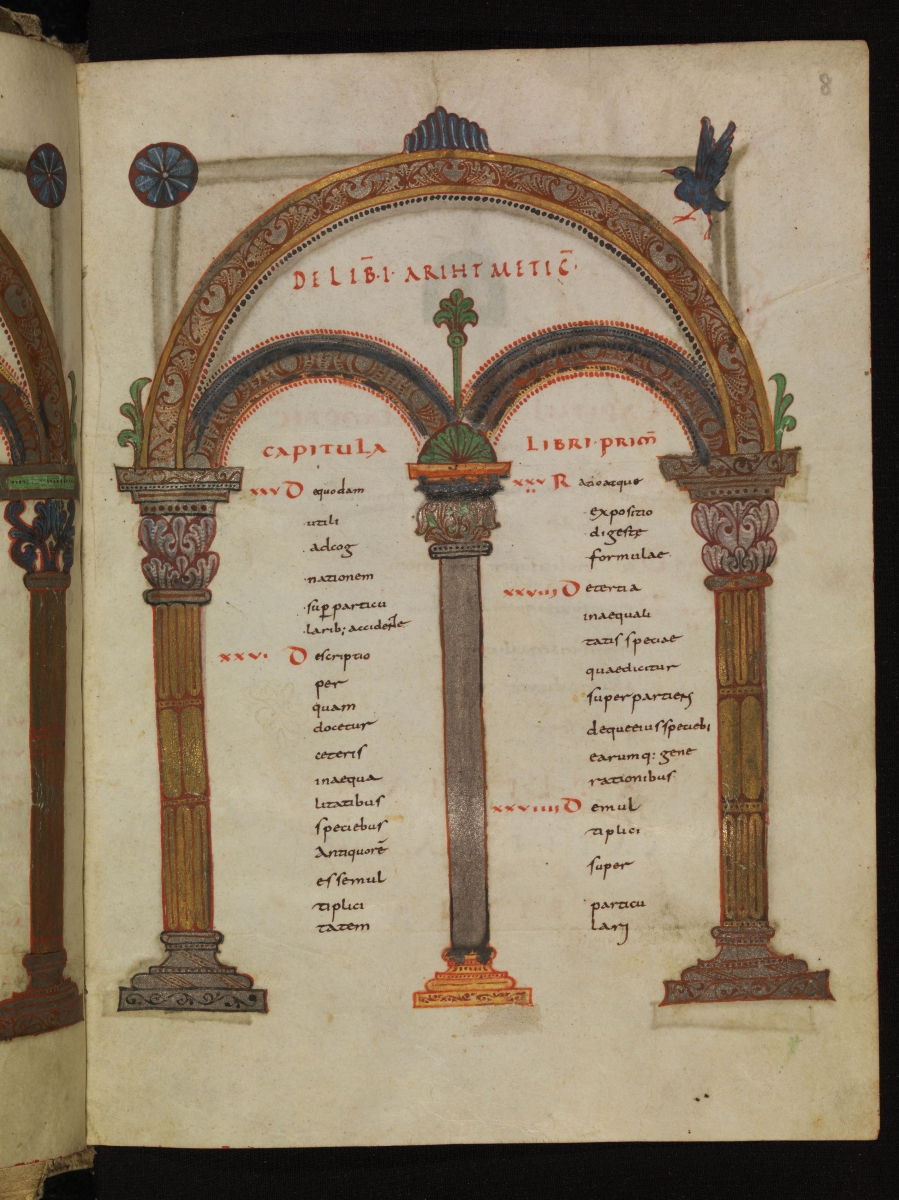 8
DE LIB̄·I· ARIHTMETIC̄·
CAPITULA
XXV Dequodam
utili
adcog
nationem
sup̲particu
larib; accidente
XXVI· Descriptio
per
quam
docetur
ceteris
inaequa
litatibus
speciebus
Antiquorē
essemul
tiplici
tatem
LIBRI·PRIM̄
XXVII Ratio atque
expositio
digestę
formulae
XXVIII Detertia
inaequali
tatis speciae
quaedicitur
superpartiens
dequeeiusspeciebus
earumq: gene
rationibus
XXVIIII Demul
tiplici
super
particu
lari